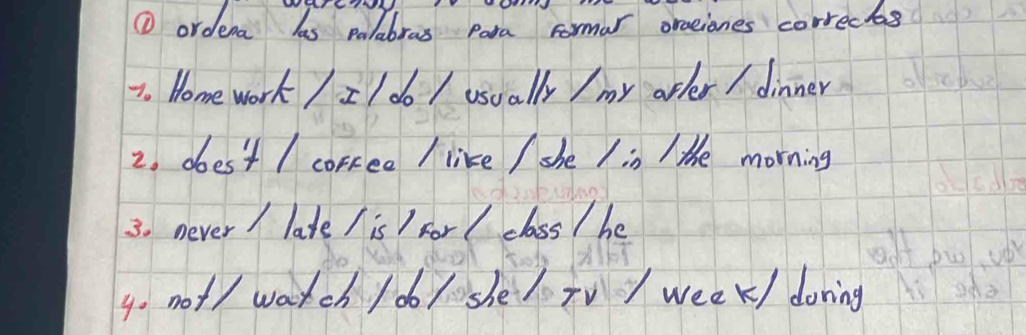 ① ordena las palabras para formar oraciones correctas
1. Home work / I / do / usually / my after / dinner
2. does't / coffee / like / she / in / the morning
3. never / late / is / for / class / he
4. not / watch / do / she / TV / week / during